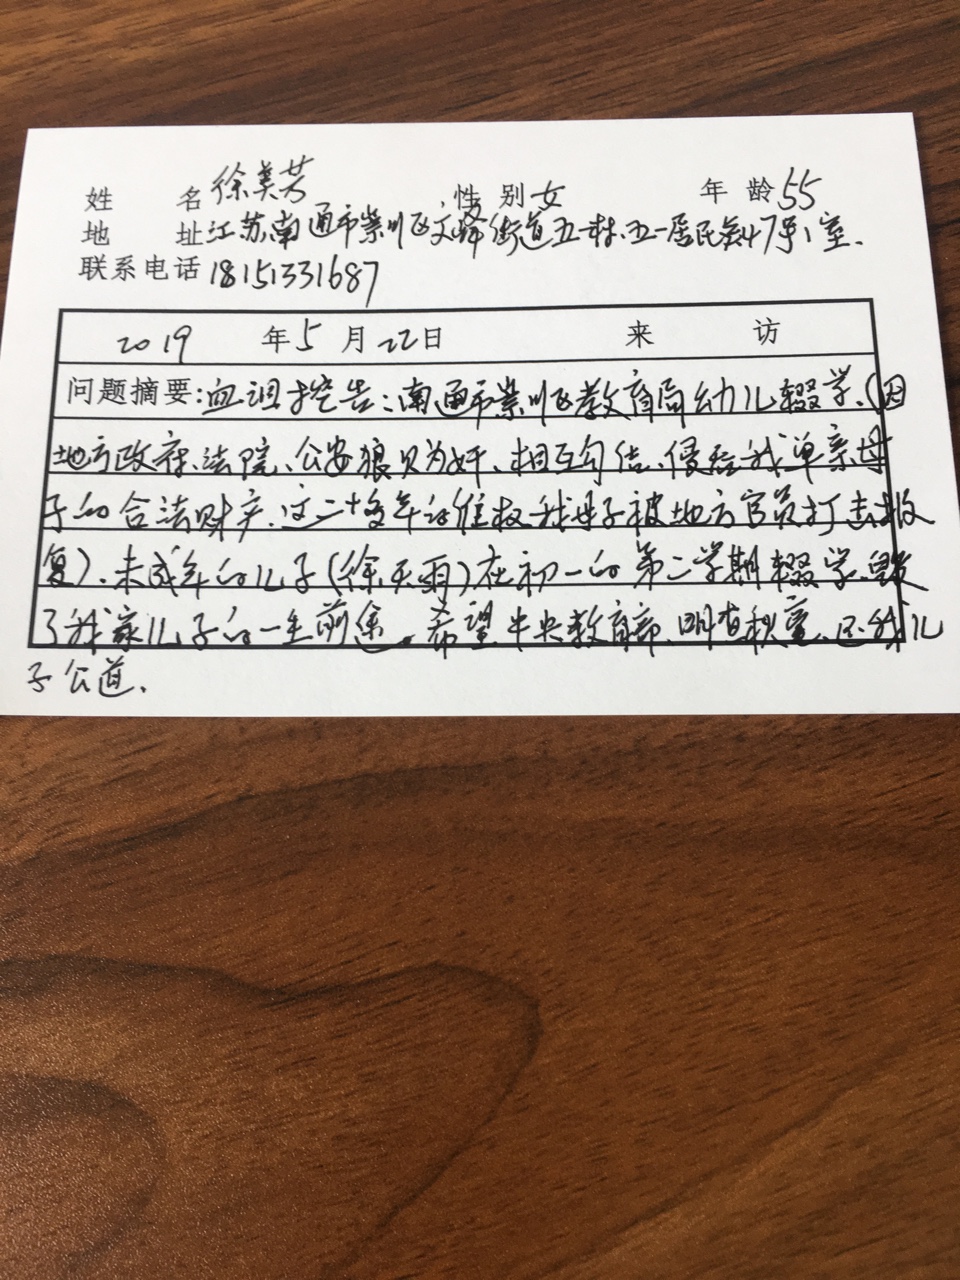 姓名徐美芳 性别女 年龄55
地址江苏南通市崇川区文峰街道五一村、五一居民组47号1室.
联系电话18151331687
2019年5月22日 来访
问题摘要:血泪控告:南通市崇川区教育局幼儿辍学.(因
地方政府、法院、公安狼贝为奸、相互勾结、侵占我单亲母
子的合法财产.这二十多年的维权我母子被地方官员打击报
复)、未成年的儿子(徐天雨)在初一的第二学期辍学.毁
了我家儿子的一生前途。希望中央教育部、明查秋毫、还我儿
子公道.